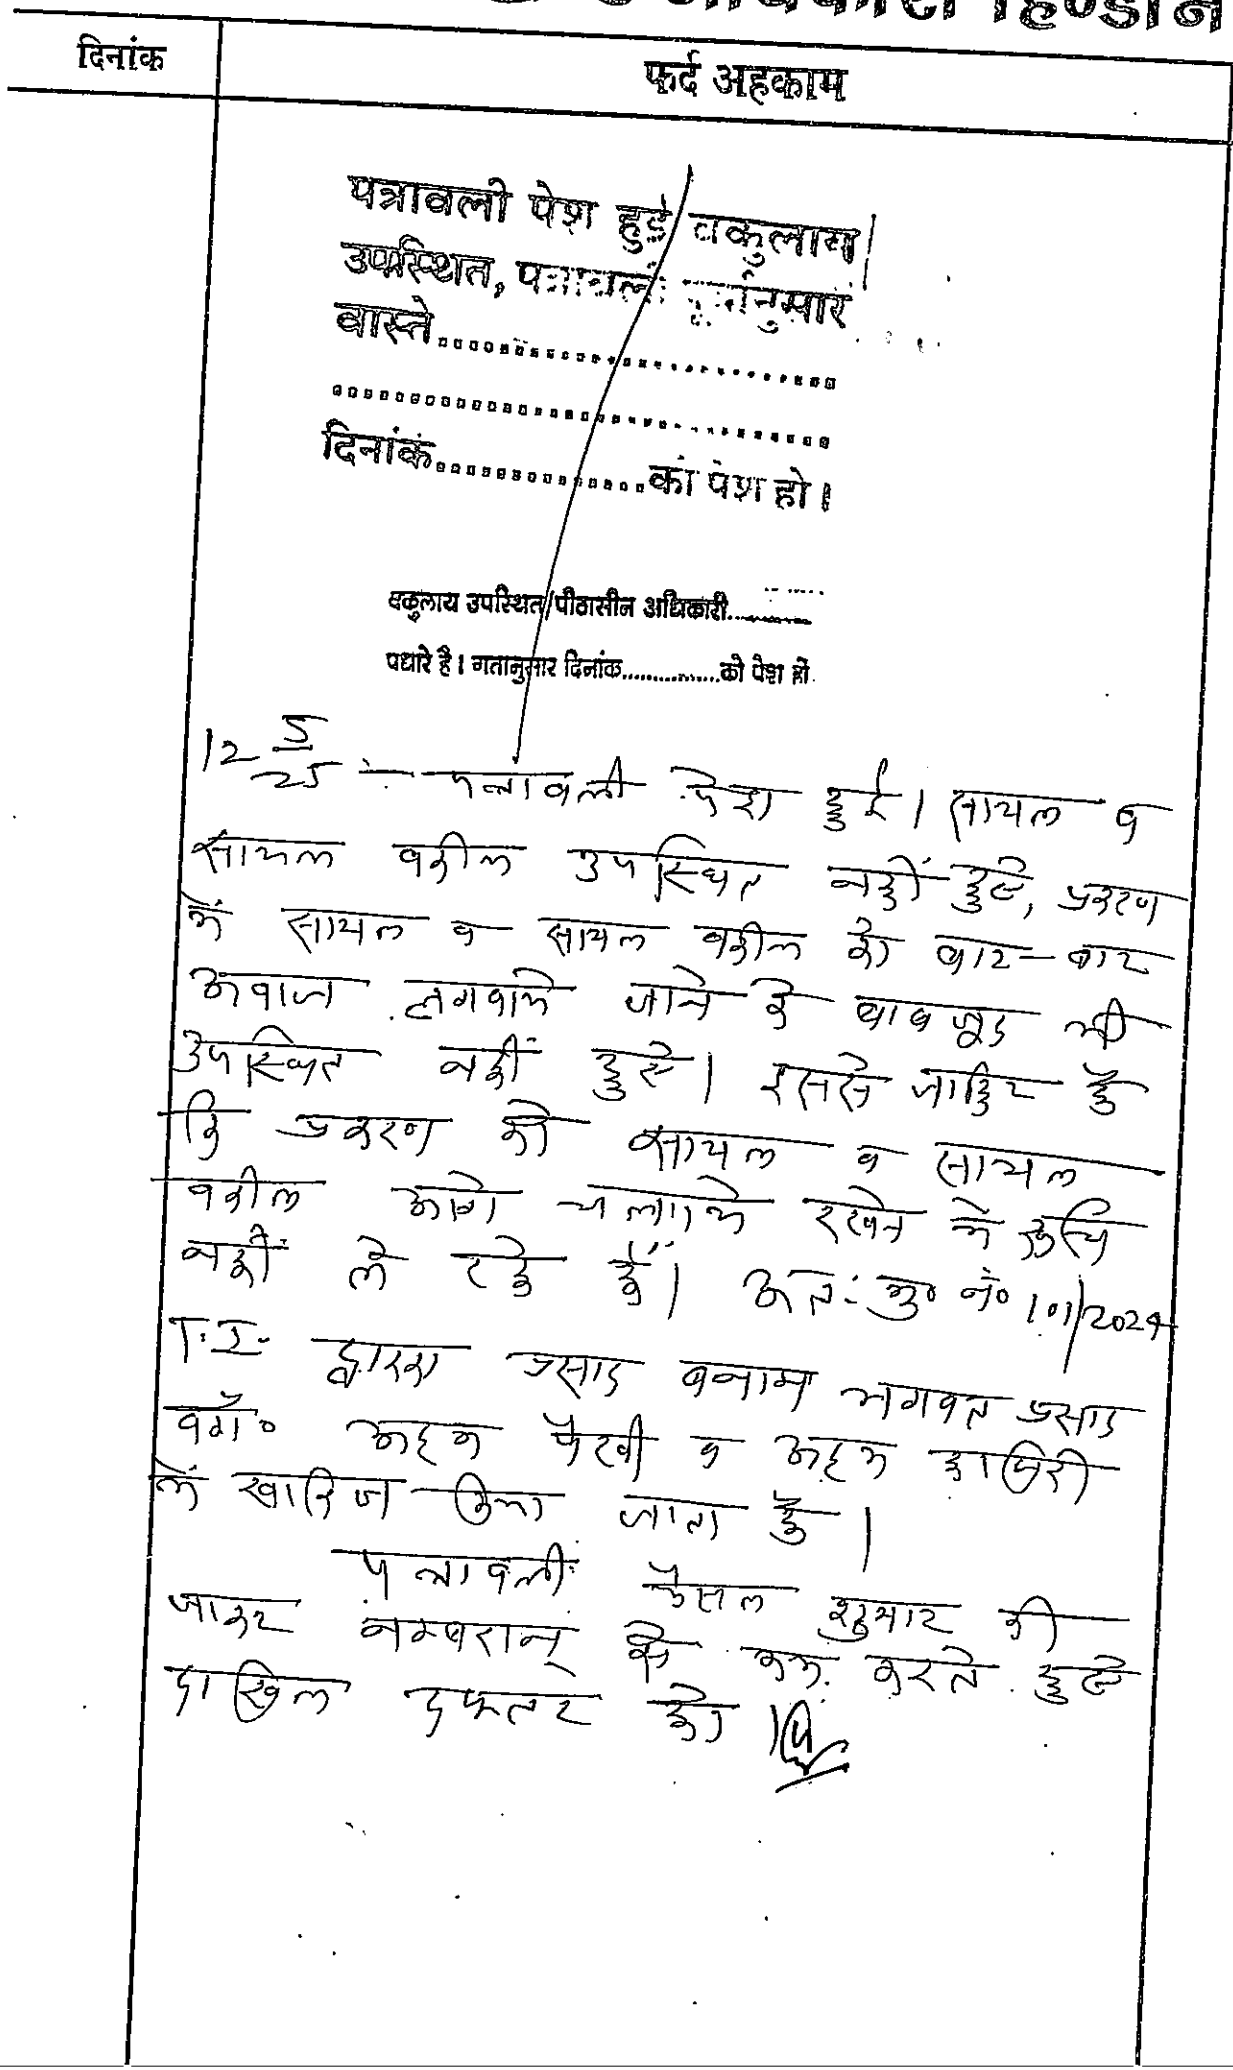 हिण्डौन
दिनांक
फर्द अहकाम
पत्रावली पेश हुई वकुलाय
उपस्थित, पत्रावली पूर्वानुसार
वास्ते........................
................................
दिनांक.............को पेश हो।
वकुलाय उपस्थित/पीठासीन अधिकारी............
पधारे है। गतानुसार दिनांक...............को पेश हो.
12 5/25 :- पत्रावली पेश हुई। सायल व
सायल वकील उपस्थित नहीं हुए, प्रकरण
में सायल व सायल वकील को बार-बार
आवाज लगवाये जाने के बावजूद भी
उपस्थित नहीं हुए। इससे जाहिर है
कि प्रकरण को सायल व सायल
वकील आगे चलाये रखने में रुचि
नहीं ले रहे हैं। अतः मु० नं० 101/2024
T.I. द्वारका प्रसाद बनाम भगवत प्रसाद
वगै० अदम पैरवी व अदम हाजिरी
में खारिज किया जाता है।
पत्रावली फैसल शुमार की
जाकर नम्बरान् से कम करते हुए
दाखिल दफ्तर हो।